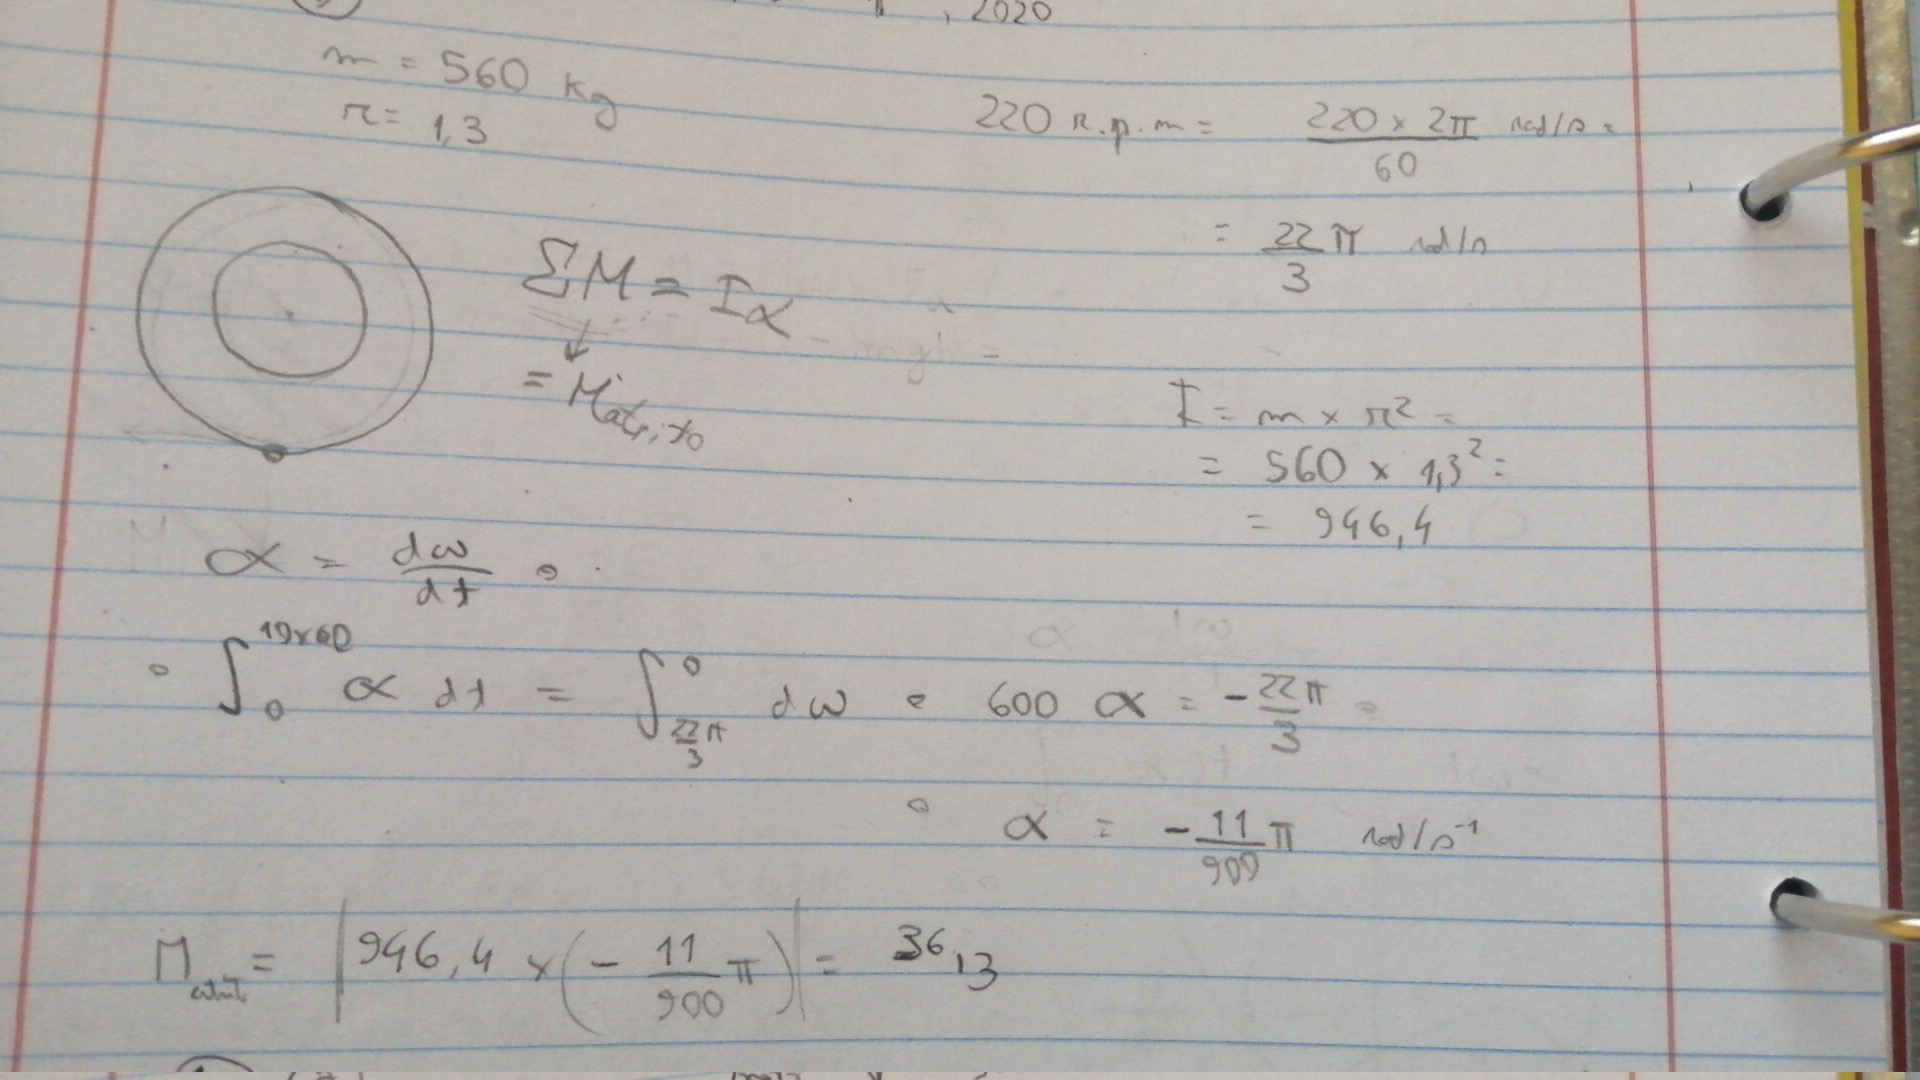 , 2020
m = 560 kg
r = 1,3
220 r.p.m = 220 x 2π / 60 rad/s =
= 22/3 π rad/s
ΣM = Iα
= Matrito
I = m x r² =
= 560 x 1,3² =
= 946,4
α = dω/dt
∫₀^19x60 α dt = ∫_22/3 π^0 dω 600 α = - 22/3 π
α = - 11/900 π rad/s⁻¹
M atrit = | 946,4 x (- 11/900 π) | = 36,13